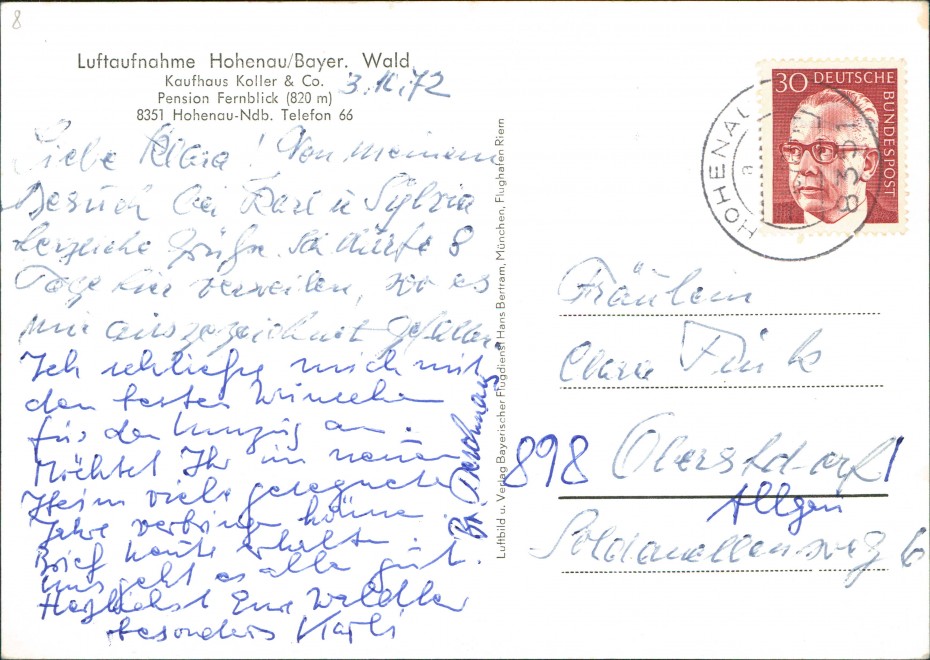 8
Luftaufnahme Hohenau/Bayer. Wald
Kaufhaus Koller & Co.
Pension Fernblick (820 m)
8351 Hohenau-Ndb. Telefon 66
3.11.72
Liebe Klara! Von meinem
Besuch bei Karl u Sylvia
herzliche Grüße. Ich dürfte 8
Tage hier verweilen, wo es
mir ausgezeichnet gefällt.
Ich schließe mich mit
den besten Wünschen
für den Umzug an.
Möchtet Ihr im neuen
Heim viele gesegnete
Jahre verbringen können.
Brief heute erhalten.
Uns geht es allen gut.
Herzlichst Eure Waldler
besonders Karli
Luftbild u. Verlag Bayerischer Flugdienst Hans Bertram, München, Flughafen Riem
30 DEUTSCHE
BUNDESPOST
HOHENAU
a
8351
Fräulein
Clara Fink
898 Oberstdorf
Allgäu
Soldanellenweg 6